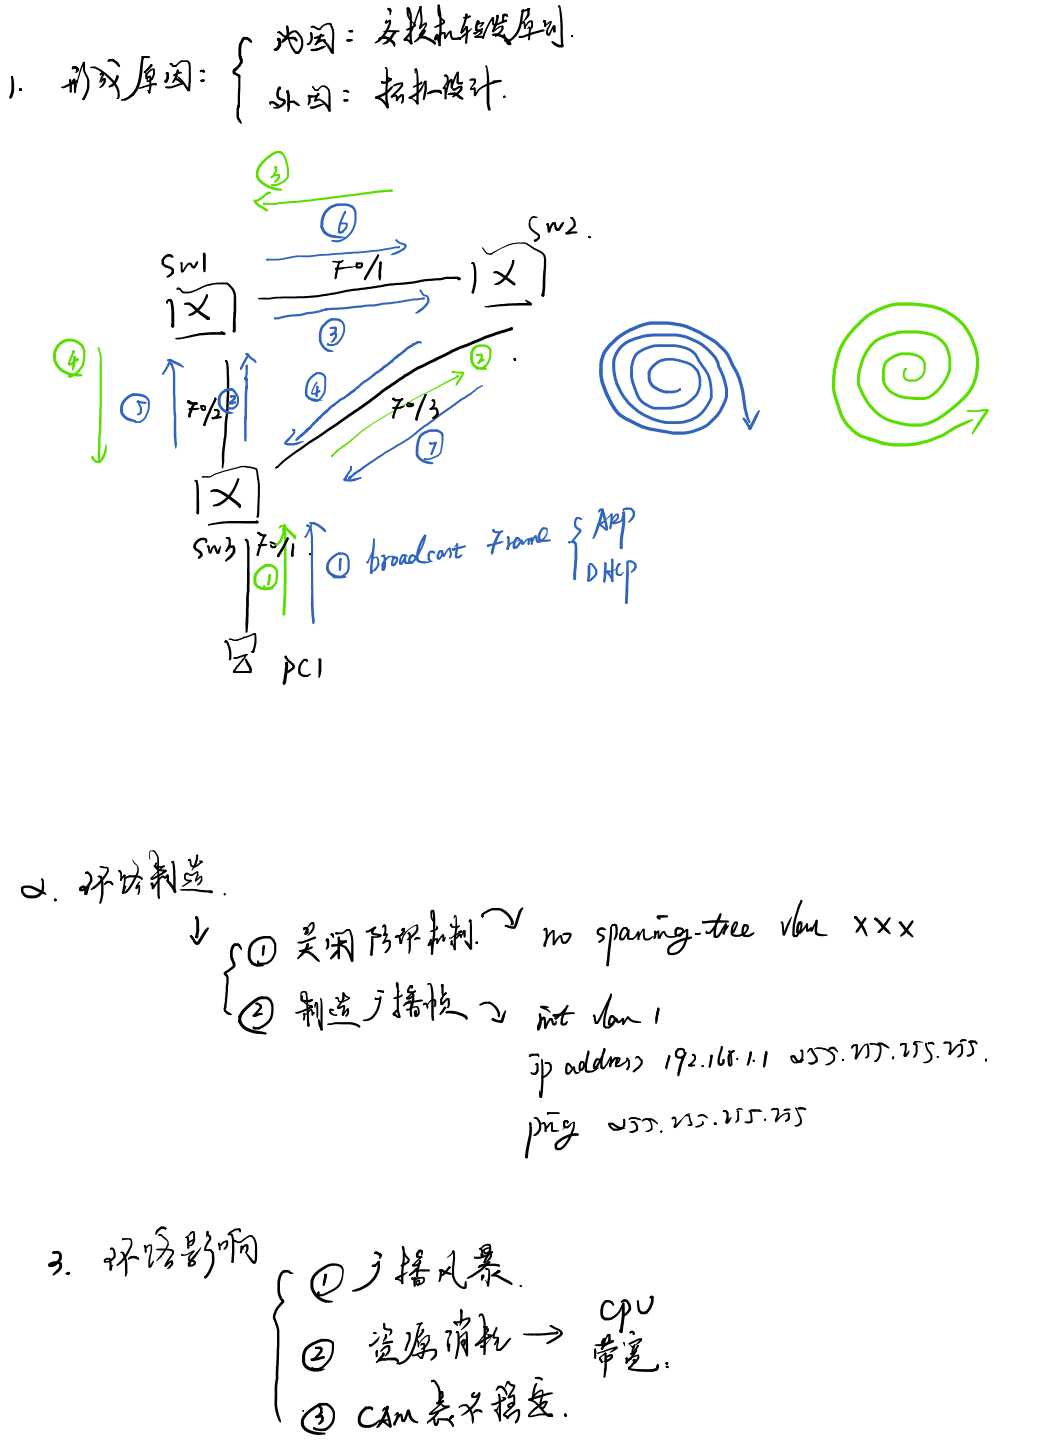 1. 形成原因： 内因： 交换机转发原则.
外因： 拓扑设计.
③
⑥
SW2.
SW1
F0/1
③
④
②
④
⑤
F0/2
②
F0/3
⑦
SW3
F0/1
①
① broadcast Frame ARP
DHCP
PC1
2. 环路制造.
① 关闭防环机制. no spaning-tree vlan xxx
② 制造广播帧 int vlan 1
ip address 192.168.1.1 255.255.255.255.
ping 255.255.255.255
3. 环路影响
① 广播风暴.
② 资源消耗 → CPU
带宽.
③ CAM表不稳定.